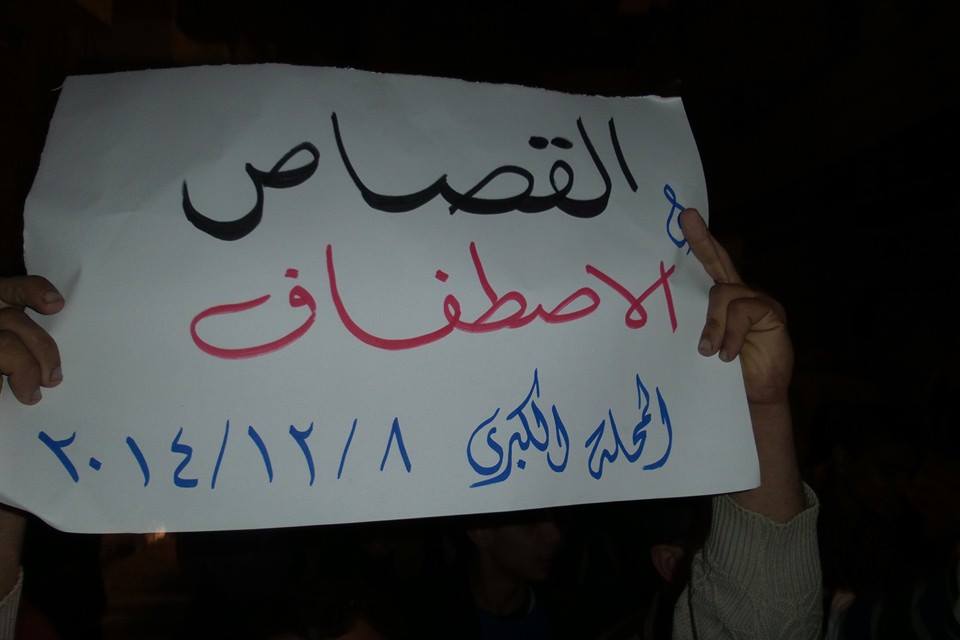 القصاص
الاصطفاف
المحلة الكبري ٨/١٢/٢٠١٤